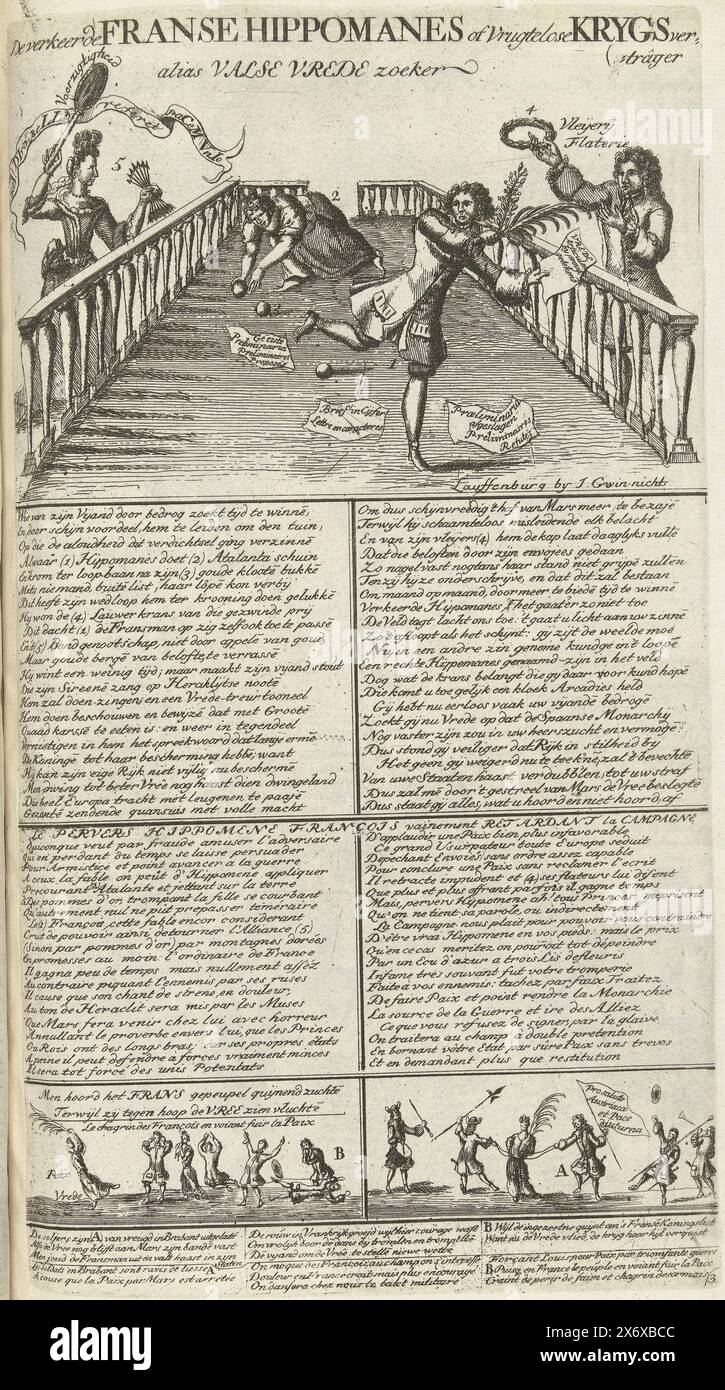 De verkeerde FRANSE HIPPOMANES of Vrugtelose KRYGS ver-
(trâger
alias VALSE VREDE zoeker
Voorzigtigheid
5
2
4
Vleijerij
Flaterie
3
1
Preliminaires
Proposés
Brief in Cyfer
Lettre en caracteres
Præliminaria
afgeslagen
Preliminaires
Refutés
Lauffenburg by J. Gwin-nichts
Wie van zijn Vijand door bedrog zoekt tijd te winnē,
En door schijn voordeel, hem te leiden om den tuin;
Op die de aloudheid dit verdichtsel ging verzinnē
Alwaar (1) Hippomanes doet (2) Atalanta schuin
Hy won de (4) Lauwer krans van die gezwinde prij
Dit dacht (1) de Fransman op zig zelf ook toe te passē
Maar goude bergē van beloftē, te verrassē
Hij wint een weinig tijd; maar maakt zijn vijand stout
Du zijn Sireenē zang op Heraklytse nootē
Hem zal doen zingen, en een Vrede-treur tooneel
Hem doen beschouwen en bewijzē dat met Grootē
Quaad karssē te eeten is: en weer in tegendeel
Vernietigen in hem het spreekwoord dat lange ermē
De Koningē tot haar bescherming hebbē, want
Hij kan zijn eige Rijk niet vijlig nu beschermē
Men dwing tot beter Vreē nog haast dien dwingeland
Die heel Europa tracht met leugenen te paajē
Gezantē zendende quansuis met volle macht
Om dus schynvreedig t hof van Mars meer te bezajē
Terwijl hij schaamteloos misleidende elk belacht
En van zijn vleijers (4) hem de kap laat daaglyks vullē
Dat die beloften door zijn envojees gedaan
Zo nagelvast nogtans haar stand niet grypē zullen
Ten zij hij ze onderschrijve, en dat dit zal bestaan
Om maand op maand, door meer te biedē tijd te winnē
Verkeerde Hyppomanes, 't het gaat er zo niet toe
De Veldtogt lacht ons toe: 't gaat u licht aan uw zinnē
Zo 't afloopt als het schijnt: gy zijt de weelde moê
Een rechte Hippomenes genaamd zijn in het veld
Dog wat de krans belangt die gy daar voor kund hopē
Die komt u toe gelijk een kloek Arcadies held
Gij hebt nu eerloos vaak uw vijande bedrogē
Zoekt gij nu Vrede op dat de Spaanse Monarchy
Nog vaster zijn zou in uw heerszucht en vermogē
Dus stond gij veiliger dat Rijk in stilheid by
Het geen gij weigerd nu te teeknē, zal 't bevechtē
Van uwe Staaten haast verdubblen tot uw straf
Dus zal mē door 't gestreel van Mars de Vreē beslegtē
Dus staat gij alles, wat u hoord en niet hoord, af
LE PERVERS HIPPOMENE FRANÇOIS vainement RETARDANT la CAMPAGNE
Quiconque veut par fraude amuser l'adversaire
Qui en perdant du temps se laisse persuader
Pour Armistice et point avancer a la guerre
A ceux la fable on peût d'Hippomene appliquer
Precourant Atalante et jettant sur la terre
3 Des pommes d'or, trompant la fille se courbant
Qu'autrement nul ne pût prepasser temeraire
Le (1) François, cette fable encor considerant
Crut de pouvoir ainsi detourner l'Alliance (5)
(Sinon par pommes d'or) par montagnes dorées
En promesses au moin: l'ordinaire de France
Il gagna peu de temps mais nullement assez
Au contraire piquant l'ennemis par ses ruses
Il cause que son chant de sirene, en douleur,
Au ton de Heraclit sera mis par les Muses
Que Mars fera venir chez lui avec horreur
Annullant le proverbe envers lui, que les Princes
Ou Rois ont des longs bras; car ses propres états
A peine il peut defendre a forces vraiment minces
Il sera tot forcé des unis Potentats
D'applaudir une Paix bien plus infavorable
Ce grand Usurpateur toute Europe seduit
Dépechant Envoiés sans ordre assez capable
Pour conclure une Paix sans reclamer l'ecrit
Il retracte impudent et (4) ses flateurs lui disent
Que plus et plus offrant par fois il gagne temps
Mais, pervers Hypomene ah! tous Princes meprisent
Qu'on ne tient sa parole, ou indirectement
La Campagne nous plait pour pouvoir vous contraindre
D'être vrai Hypomene en vos pieds: mais le prix
Qu'en ce cas meritez, on pouroit tot dépeindre
Par un Ecu d'azur a trois Lis defleuris
Infame tres souvent fut votre tromperie
Faite à vos ennemis: tachez par faux Traitez
De faire Paix et point rendre la Monarchie
La source de la Guerre et ire des Alliez
Ce que vous refusez de signer par la glaive
On traitera au champ à double pretention
En bornant vôtre Etat par sûre Paix sans treves
Et en demandant plus que restitution
Men hoord het FRANS gepeupel quijnend zuchtē
Terwijl zij tegen hoop de VREE zien vluchtē
Le chagrin des François en voiant fuir la Paix
Paix
Vrede
B
A
Pro salute
Austriaca
et Pace
diuturna
De soljers zijn A van vreugd in Braband uitgelatē
Als de Vreē nog blijft aan Mars zijn band vast
A cause que la Paix par Mars est arretée
De rouw in Vrankrijk groeid wijl hier courage wast
De vijand om de Vreē te stellē niewe wette
On moque des François au champ on s'interesse
Douleur en France croit mais plus encouragé
On dansera chez nous le balet militaire
B Wijl de ingezeetnē quijnt an's Franse Konings last
Want nu de Vrede vlied, de kryg haar hijl verquist
Forçant Louis pour Paix par trionfante guerre
B Puisq en France le peuple en voiant fuir la Paix
Craint de perir de faim et chagrin desormais
alamy
Image ID: 2X6XBCC
www.alamy.com